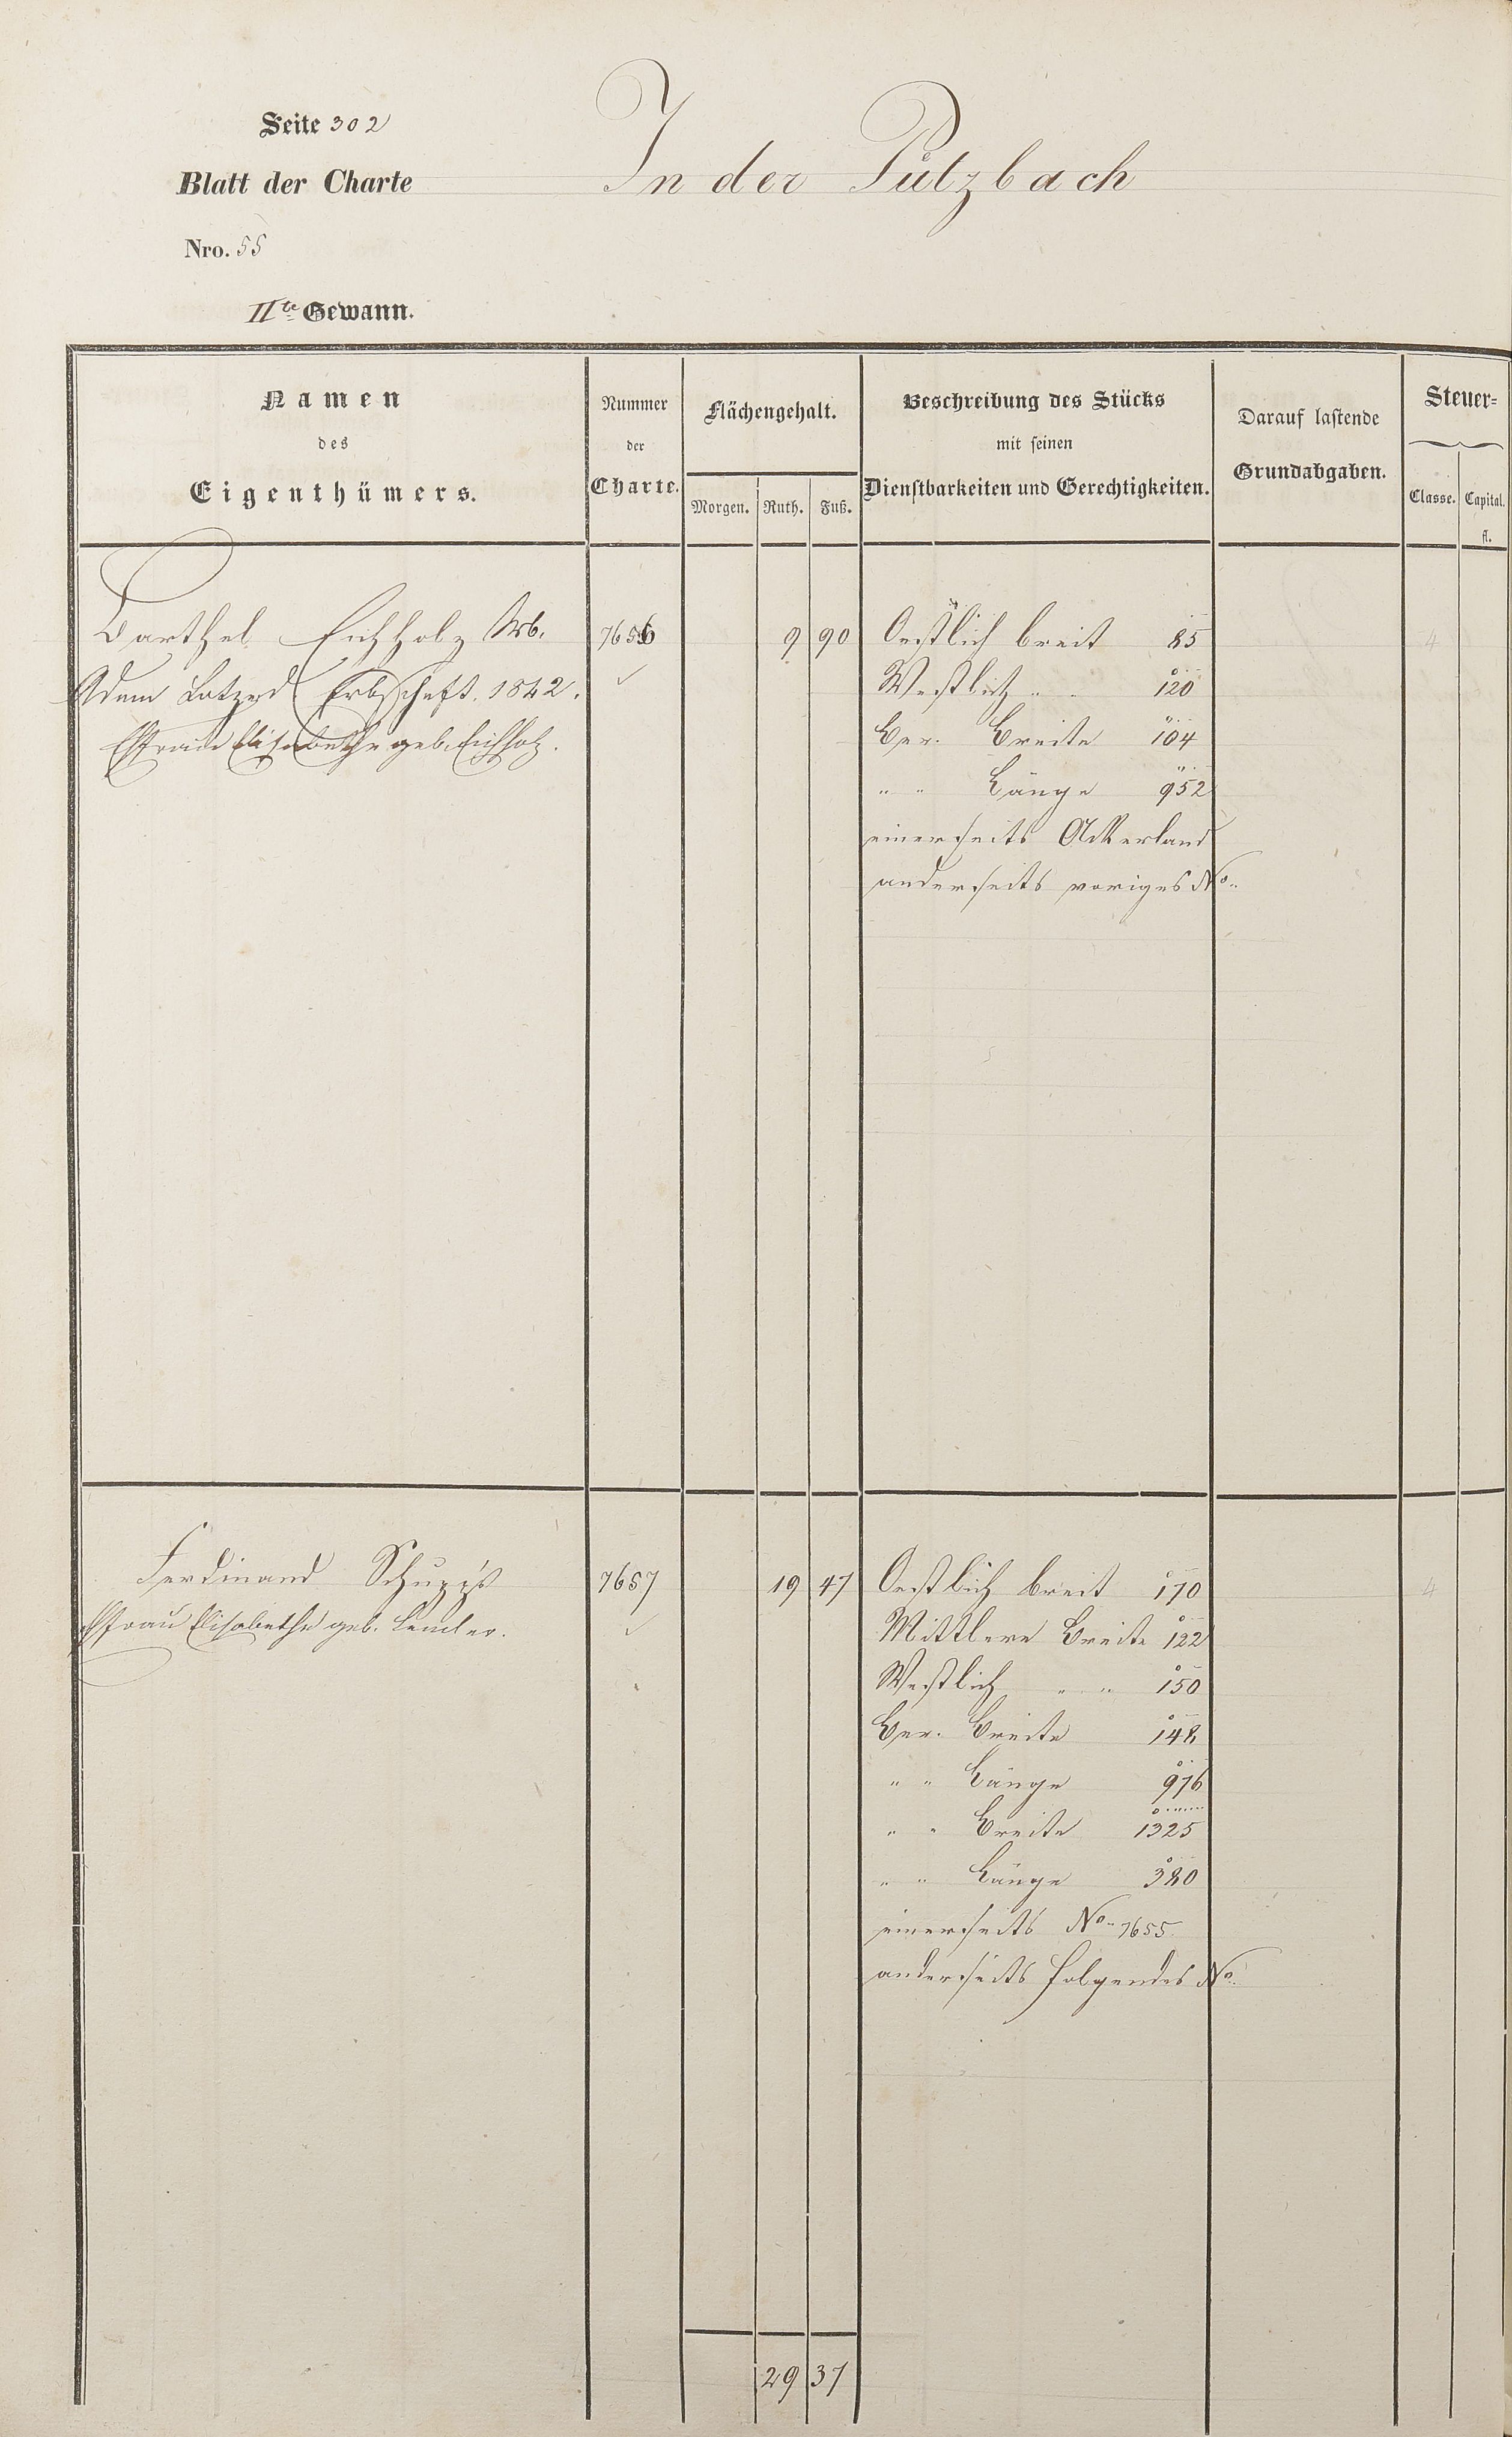 Seite 302
Blatt der Charte
In der Pützbach
Nro. 55
IIte Gewann.
Namen
des
Eigenthümers.
Nummer
der
Charte.
Flächengehalt.
Morgen. Ruth. Fuß.
Beschreibung des Stücks
mit seinen
Dienstbarkeiten und Gerechtigkeiten.
Darauf lastende
Grundabgaben.
Steuer-
Classe. Capital.
fl.
Barthel Eichholz 7656 9 90 Oestlich breit 85 4
Adam Erbschaft. 1842. Westlich " " 120
Ehfrau Elisabethe geb. Eichholz. Ber. Breite 104
" " Länge 952
einerseits Ackerland
anderseits voriges No.
Ferdinand Schupp's 7657 19 47 Oestlich breit 170 4
Ehfrau Elisabethe geb. Mittlere Breite 122
Westlich " " 150
Ber. Breite 148
" " Länge 976
" " Breite 1325
" " Länge 380
einerseits No. 7655
anderseits folgendes No.
29 37